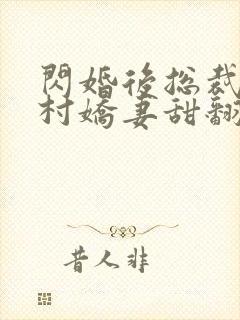 閃婚後總裁
村嬌妻甜翻
昔人非